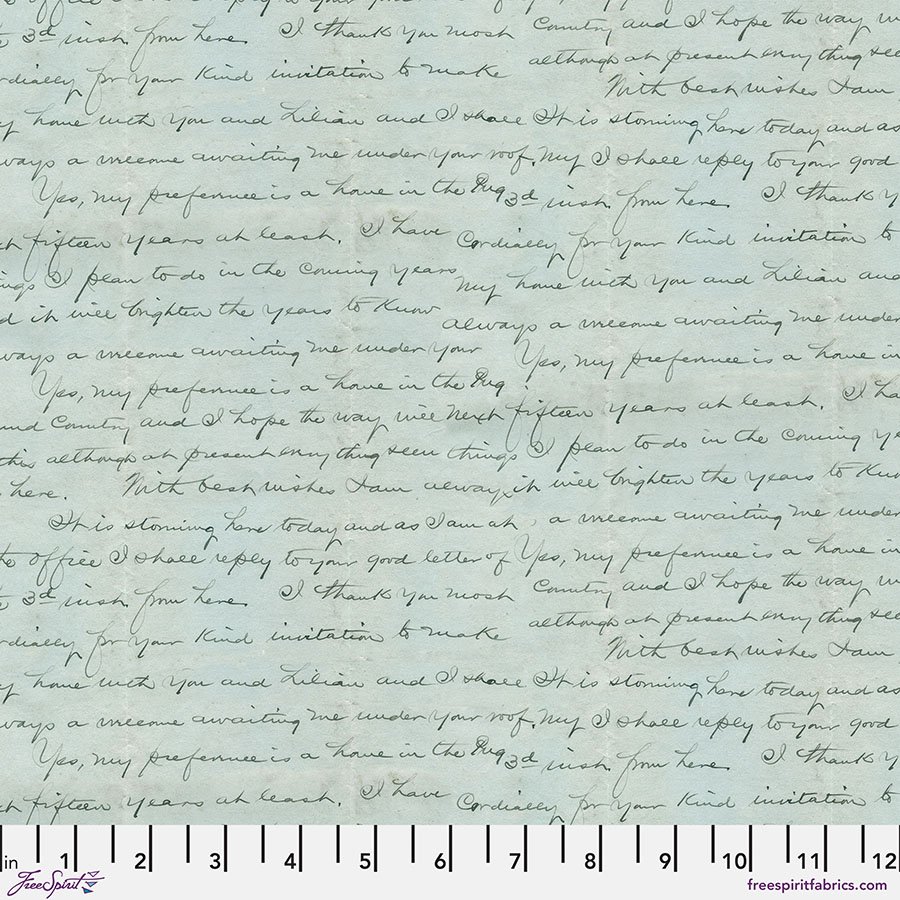 3d inst. from here. I thank you most Country and I hope the way
cordially for your kind invitation to make although at present everything seen
With best wishes I am
my home with you and Lilian and I shall It is storming here today and as
always a welcome awaiting me under your roof. My I shall reply to your good
Yes, my preference is a home in the 3d inst. from here. I thank
fifteen years at least. I have Cordially for your kind invitation to
things I plan to do in the coming years my home with you and Lilian and
and it will brighten the years to know always a welcome awaiting me under
always a welcome awaiting me under your Yes, my preference is a home in
Yes, my preference is a home in the fifteen years at least. I have
and Country and I hope the way will next
this although at present everything seen things I plan to do in the coming
here. With best wishes I am always it will brighten the years to know
It is storming here today and as I am at a welcome awaiting me under
the office I shall reply to your good letter of Yes, my preference is a home in
3d inst. from here. I thank you most Country and I hope the way
cordially for your kind invitation to make although at present everything seen
With best wishes I am
my home with you and Lilian and I shall It is storming here today and as
always a welcome awaiting me under your roof. My I shall reply to your good
Yes, my preference is a home in the 3d inst. from here. I thank
fifteen years at least. I have Cordially for your kind invitation to
in 1 2 3 4 5 6 7 8 9 10 11 12
FreeSpirit
freespiritfabrics.com